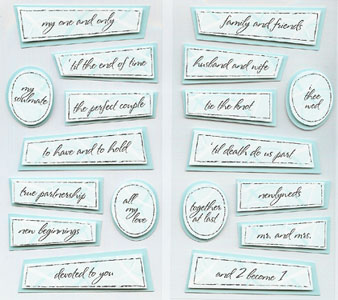 my one and only
'til the end of time
my
soulmate
the perfect couple
to have and to hold
true partnership
all
my
love
new beginnings
devoted to you
family and friends
husband and wife
tie the knot
thee
wed
'til death do us part
newlyweds
together
at last
mr. and mrs.
and 2 become 1